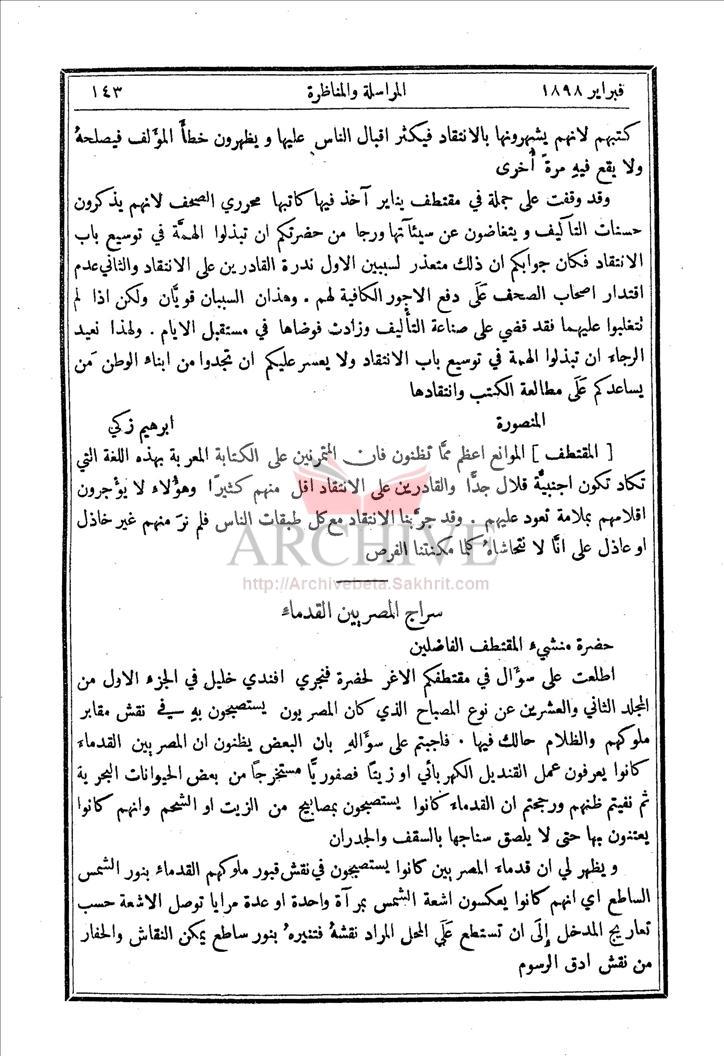 فبراير ١٨٩٨ المراسلة والمناظرة ١٤٣
كتبهم لانهم يشهرونها بالانتقاد فيكثر اقبال الناس عليها ويظهرون خطأ المؤلف فيصلحهُ
ولا يقع فيهِ مرةً أُخرى
وقد وقفت على جملة في مقتطف يناير آخذ فيها كاتبها محرري الصحف لانهم يذكرون
حسنات التآليف ويتغاضون عن سيئآتها ورجا من حضرتكم ان تبذلوا الهمَّة في توسيع باب
الانتقاد فكان جوابكم ان ذلك متعذر لسببين الاول ندرة القادرين على الانتقاد والثاني عدم
اقتدار اصحاب الصحف عَلَى دفع الاجور الكافية لهم . وهذان السببان قويَّان ولكن اذا لم
نتغلبوا عليهما فقد قضي على صناعة التأليف وزادت فوضاها في مستقبل الايام . ولهذا نعيد
الرجاء ان تبذلوا الهمة في توسيع باب الانتقاد ولا يعسر عليكم ان تجدوا من ابناء الوطن مَن
يساعدكم عَلَى مطالعة الكتب وانتقادها
المنصورة ابرهيم زكي
[ المقتطف ] الموانع اعظم ممَّا تظنون فان المتمرنين على الكتابة المعربة بهذه اللغة التي
تكاد تكون اجنبيَّة قلال جدًّا والقادرين على الانتقاد اقل منهم كثيرًا وهؤُلاء لا يؤجرون
اقلامهم بملامة تعود عليهم . وقد جرَّبنا الانتقاد مع كل طبقات الناس فلم نرَ منهم غير خاذل
او عاذل على انَّا لا نتحاشاهُ كلما مكنتنا الفرص
ARCHIVE
http://Archivebeta.Sakhrit.com
سراج المصريين القدماء
حضرة منشيء المقتطف الفاضلين
اطلعت على سؤال في مقتطفكم الاغر لحضرة فنجري افندي خليل في الجزء الاول من
المجلد الثاني والعشرين عن نوع المصباح الذي كان المصريون يستصبحون بهِ في نقش مقابر
ملوكهم والظلام حالك فيها . فاجبتم على سؤاله بان البعض يظنون ان المصريين القدماء
كانوا يعرفون عمل القنديل الكهربائي او زيتًا فصفوريًّا مستخرجًا من بعض الحيوانات البحرية
ثم نفيتم ظنهم ورجحتم ان القدماء كانوا يستصبحون بمصابيح من الزيت او الشحم وانهم كانوا
يعتنون بها حتى لا يلصق سناجها بالسقف والجدران
ويظهر لي ان قدماء المصريين كانوا يستصبحون في نقش قبور ملوكهم القدماء بنور الشمس
الساطع اي انهم كانوا يعكسون اشعة الشمس بمرآة واحدة او عدة مرايا توصل الاشعة حسب
تعاريج المدخل إِلَى ان تستطع عَلَى المحل المراد نقشهُ فتنيرهُ بنور ساطع يمكن النقاش والحفار
من نقش ادق الرسوم